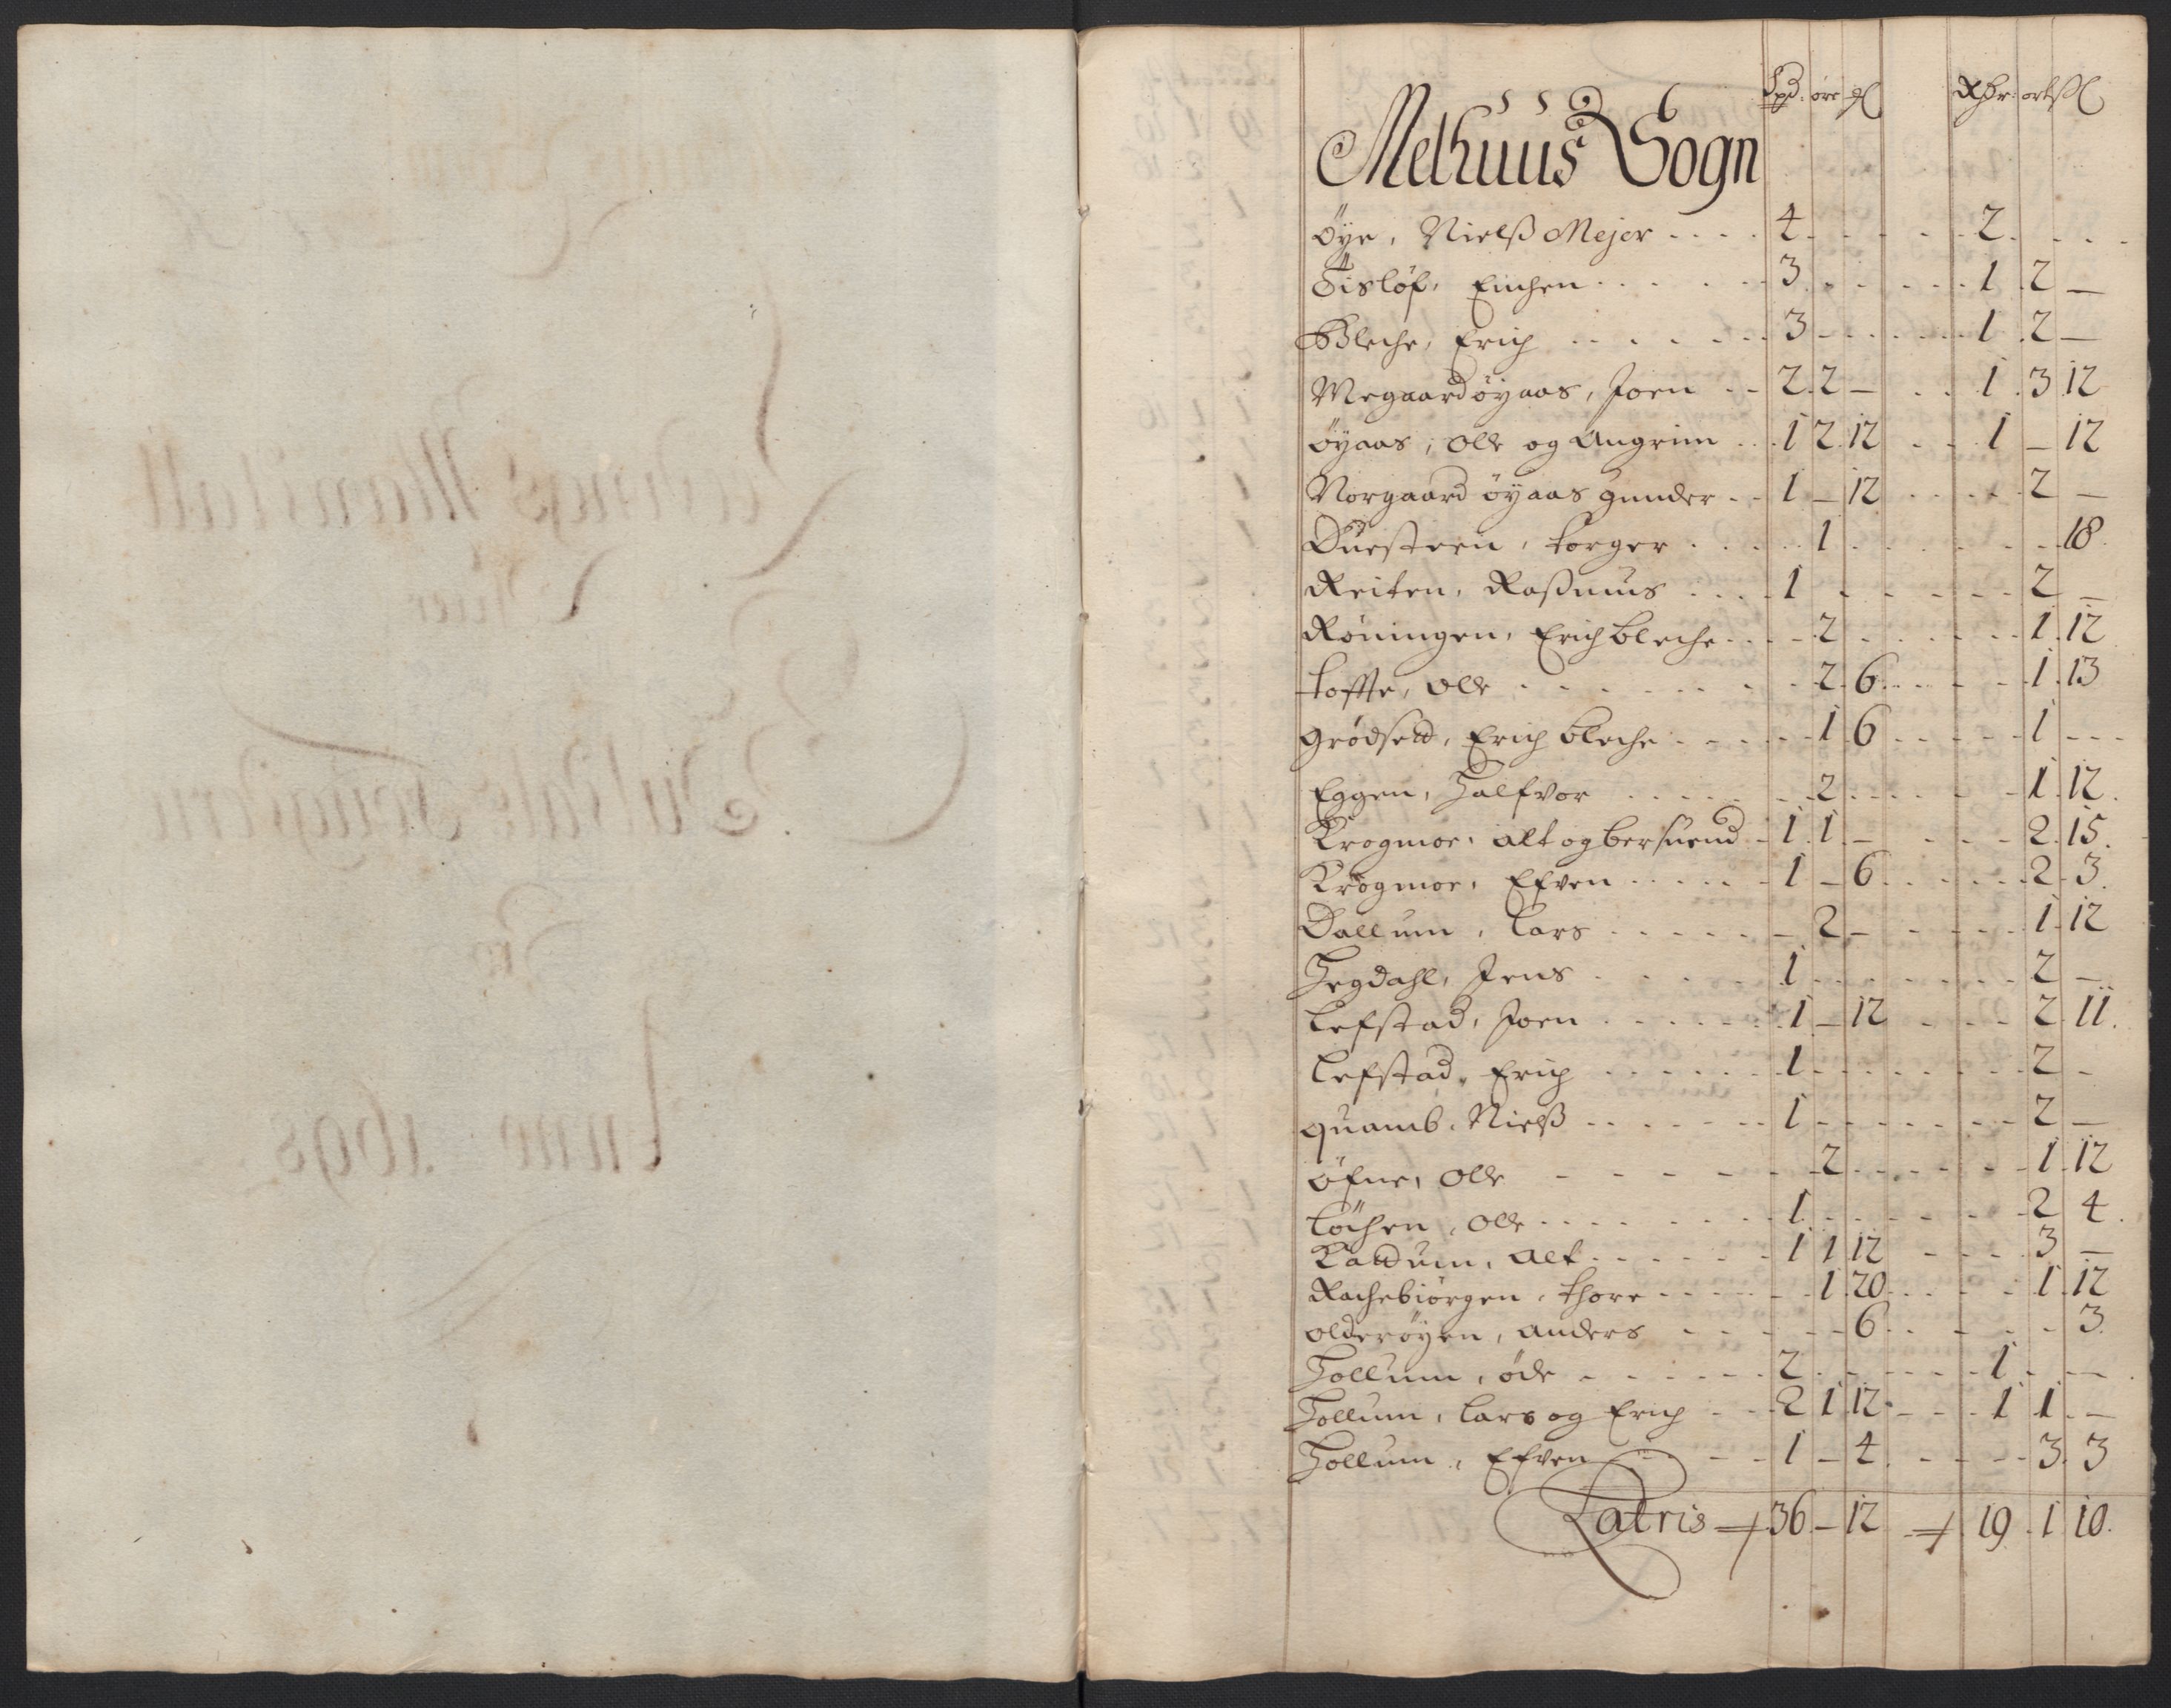 Spd: øre gl Rdr: ort ß
Melhuus Sogn
Øye, Nielß Mejer 4 2
Tisløf, Einchen 3 1 2 —
Bleche, Erich 3 1 2 —
Megaard øyaas, Joen 2 2 — 1 3 12
Øyaas, Olle og Angrim 1 2 12 1 — 12
Norgaard øyaas Gunder 1 — 12 2 —
Duesteen, torger 1 18
Reiten, Raßmus 1 2 —
Røningen, Erich bleche 2 1 12
toffte, Olle 2 6 1 13
Grødsed, Erich bleche 1 6 1
Eggen, Halfvor 2 1 12
Krogmoe, alt og bersuend 1 1 — 2 15
Krogmoe, Efven 1 — 6 2 3
Dallum, Lars 2 — 1 12
Hegdahl, Jens 1 2 —
Lefstad, Joen 1 — 12 2 11
Lefstad, Erich 1 2 —
quamb. Nielß 1 2 —
Øfne, Olle 2 1 12
Løchen, Olle 1 2 4
Kaldum, Alf 1 1 12 3 —
Rachebiørgen, thore 1 20 1 12
Olderøyen, anders 6 3
Hollum, øde 2 1 —
Hollum, Lars og Erich 2 1 12 1 1 —
Hollum, Efven 1 — 4 3 3
Latris 36 — 12 19 1 10